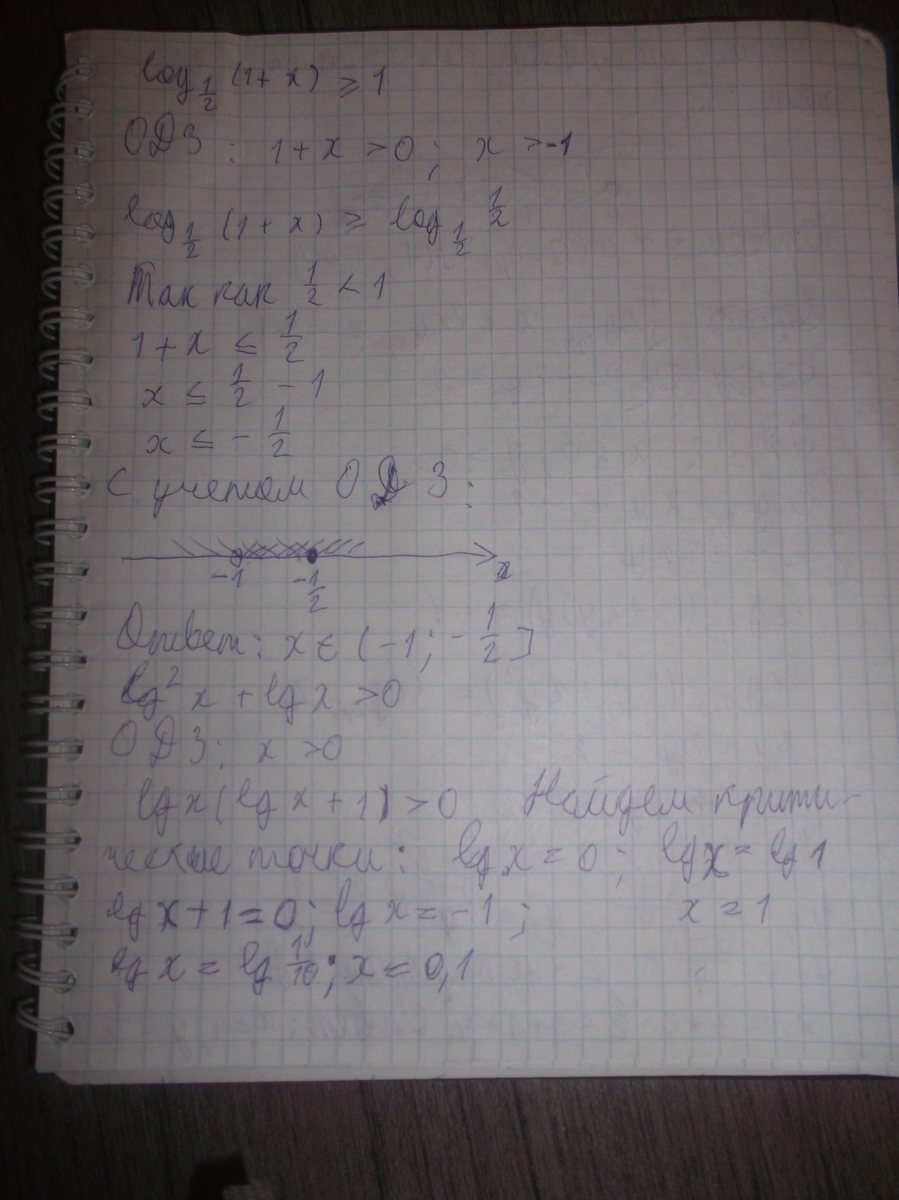 log 1/2 (1+x) ≥ 1
ОДЗ: 1+x >0; x >-1
log 1/2 (1+x) ≥ log 1/2 1/2
Так как 1/2 < 1
1+x ≤ 1/2
x ≤ 1/2 - 1
x ≤ - 1/2
С учетом ОДЗ:
-1 -1/2 x
Ответ: x ∈ (-1; -1/2]
lg² x + lg x >0
ОДЗ: x >0
lg x (lg x +1) >0 Найдем крити-
ческие точки: lg x = 0; lg x = lg 1
lg x+1=0; lg x = -1; x = 1
lg x = lg 1/10; x = 0,1